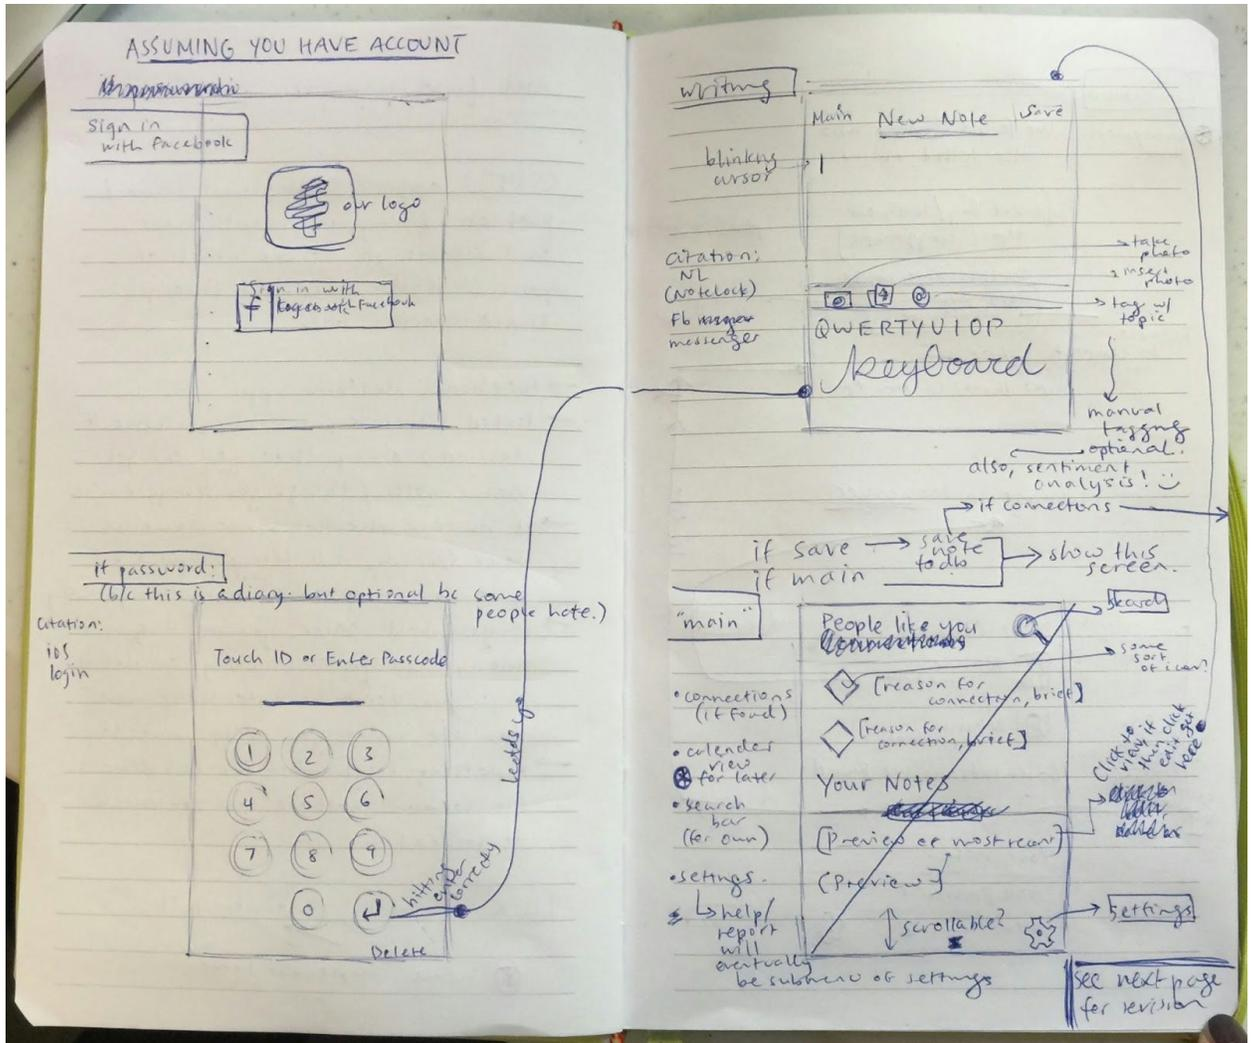 ASSUMING YOU HAVE ACCOUNT
sign in
with facebook
our logo
f
Sign in with
Facebook
if password:
(b/c this is a diary. but optional bc some
people hate.)
Citation:
ios
login
Touch ID or Enter Passcode
1 2 3
4 5 6
7 8 9
0
Delete
hitting
enter
correctly
leads to
writing
Main New Note Save
blinking
cursor
citation:
NL
(Notelock)
Fb
messenger
take
photo
insert
photo
tag w/
topic
QWERTYUIOP
keyboard
manual
tagging
optional.
also, sentiment
analysis!
if connections
if save
save
note
to db
if main
show this
screen.
"main"
People like you
search
some
sort
of icon?
[reason for
connection, brief]
[reason for
connection, brief]
Your Notes
[Preview of most recent]
[Preview]
scrollable?
settings
Click to
view it
then click
edit get
here
• connections
(if found)
• calender
view
for later
• search
bar
(for own)
• settings.
help/
report
will
eventually
be submenu of settings
see next page
for revision